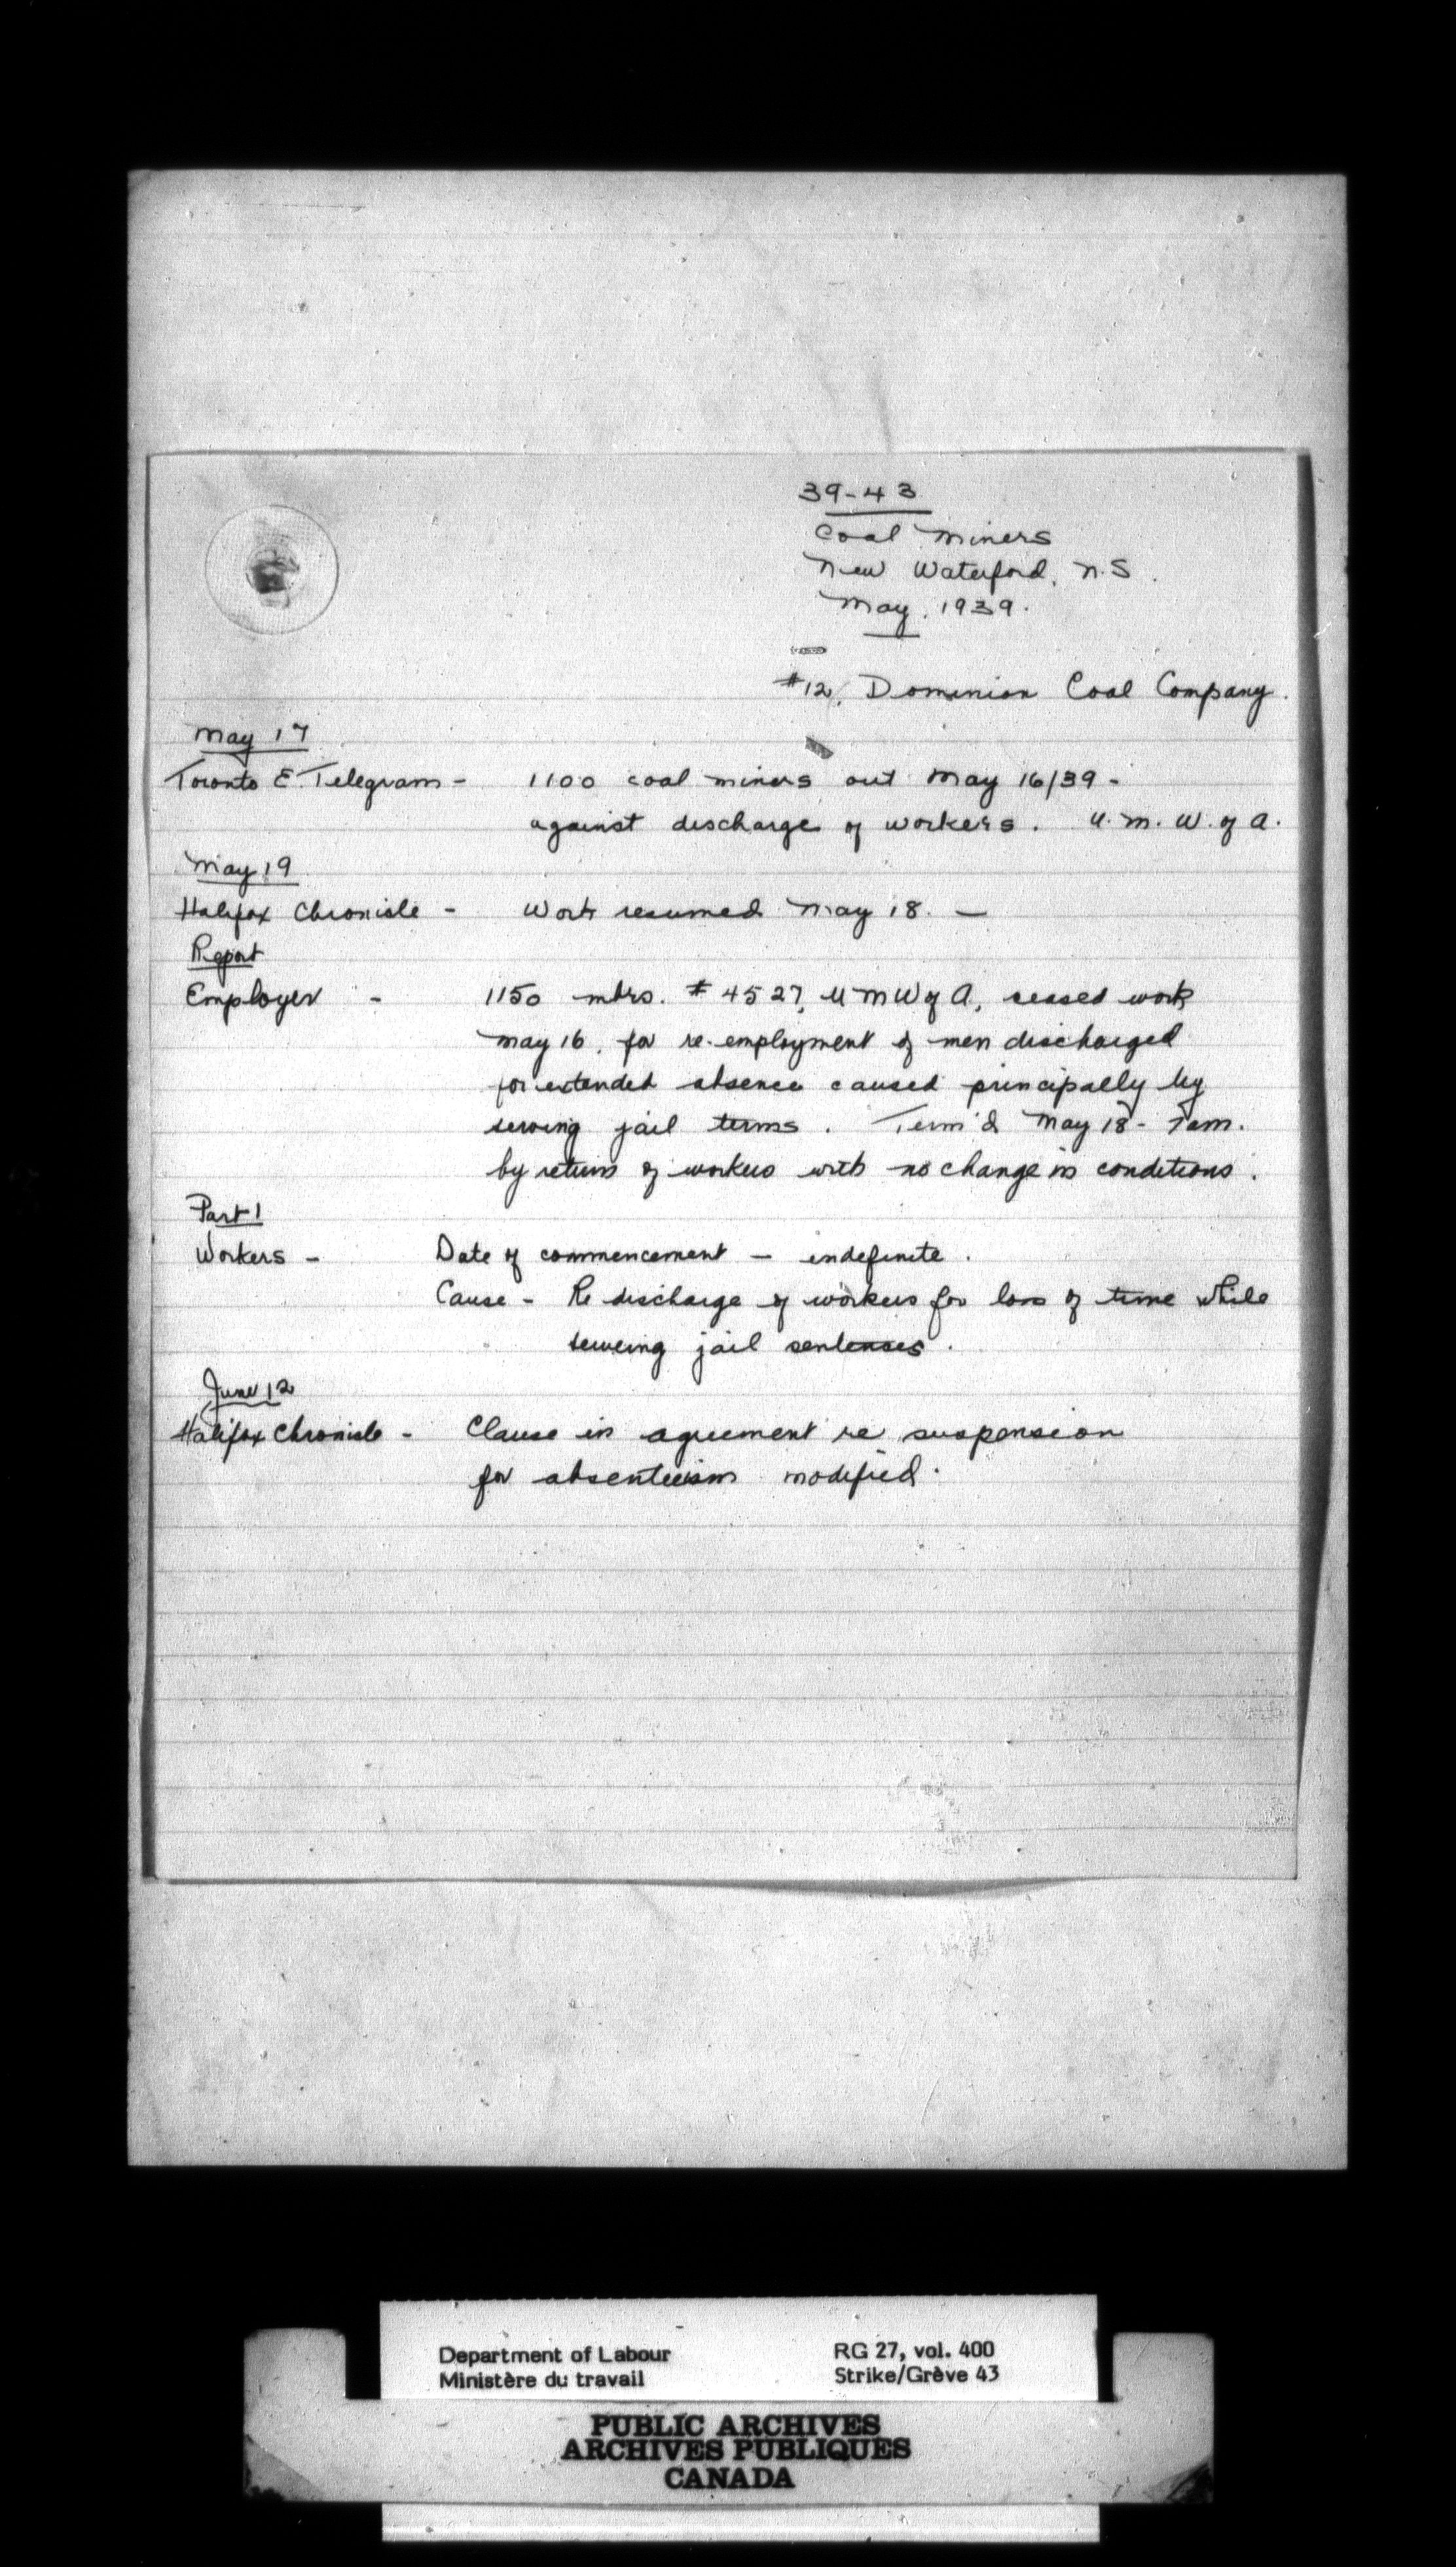 39-43
Coal Miners
New Waterford, N.S.
May, 1939.
#12, Dominion Coal Company.
May 17
Toronto E. Telegram - 1100 coal miners out May 16/39 -
against discharge of workers. U.M.W. of A.
May 19
Halifax Chronicle - Work resumed May 18. —
Report
Employer - 1150 mbrs. #4527, UMW of A, ceased work
May 16, for re-employment of men discharged
for extended absence caused principally by
serving jail terms. Term'd May 18 - 7am.
by return of workers with no change in conditions.
Part 1
Workers - Date of commencement — indefinite.
Cause - Re discharge of workers for loss of time while
serving jail sentences.
June 12
Halifax Chronicle - Clause in agreement re suspension
for absenteeism modified.
Department of Labour
Ministère du travail
RG 27, vol. 400
Strike/Grève 43
PUBLIC ARCHIVES
ARCHIVES PUBLIQUES
CANADA